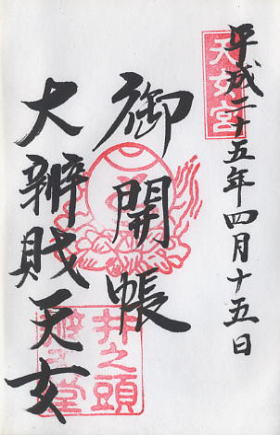 平成二十五年四月十五日
天女宮
御開帳
大辨財天女
井之頭
辨天堂